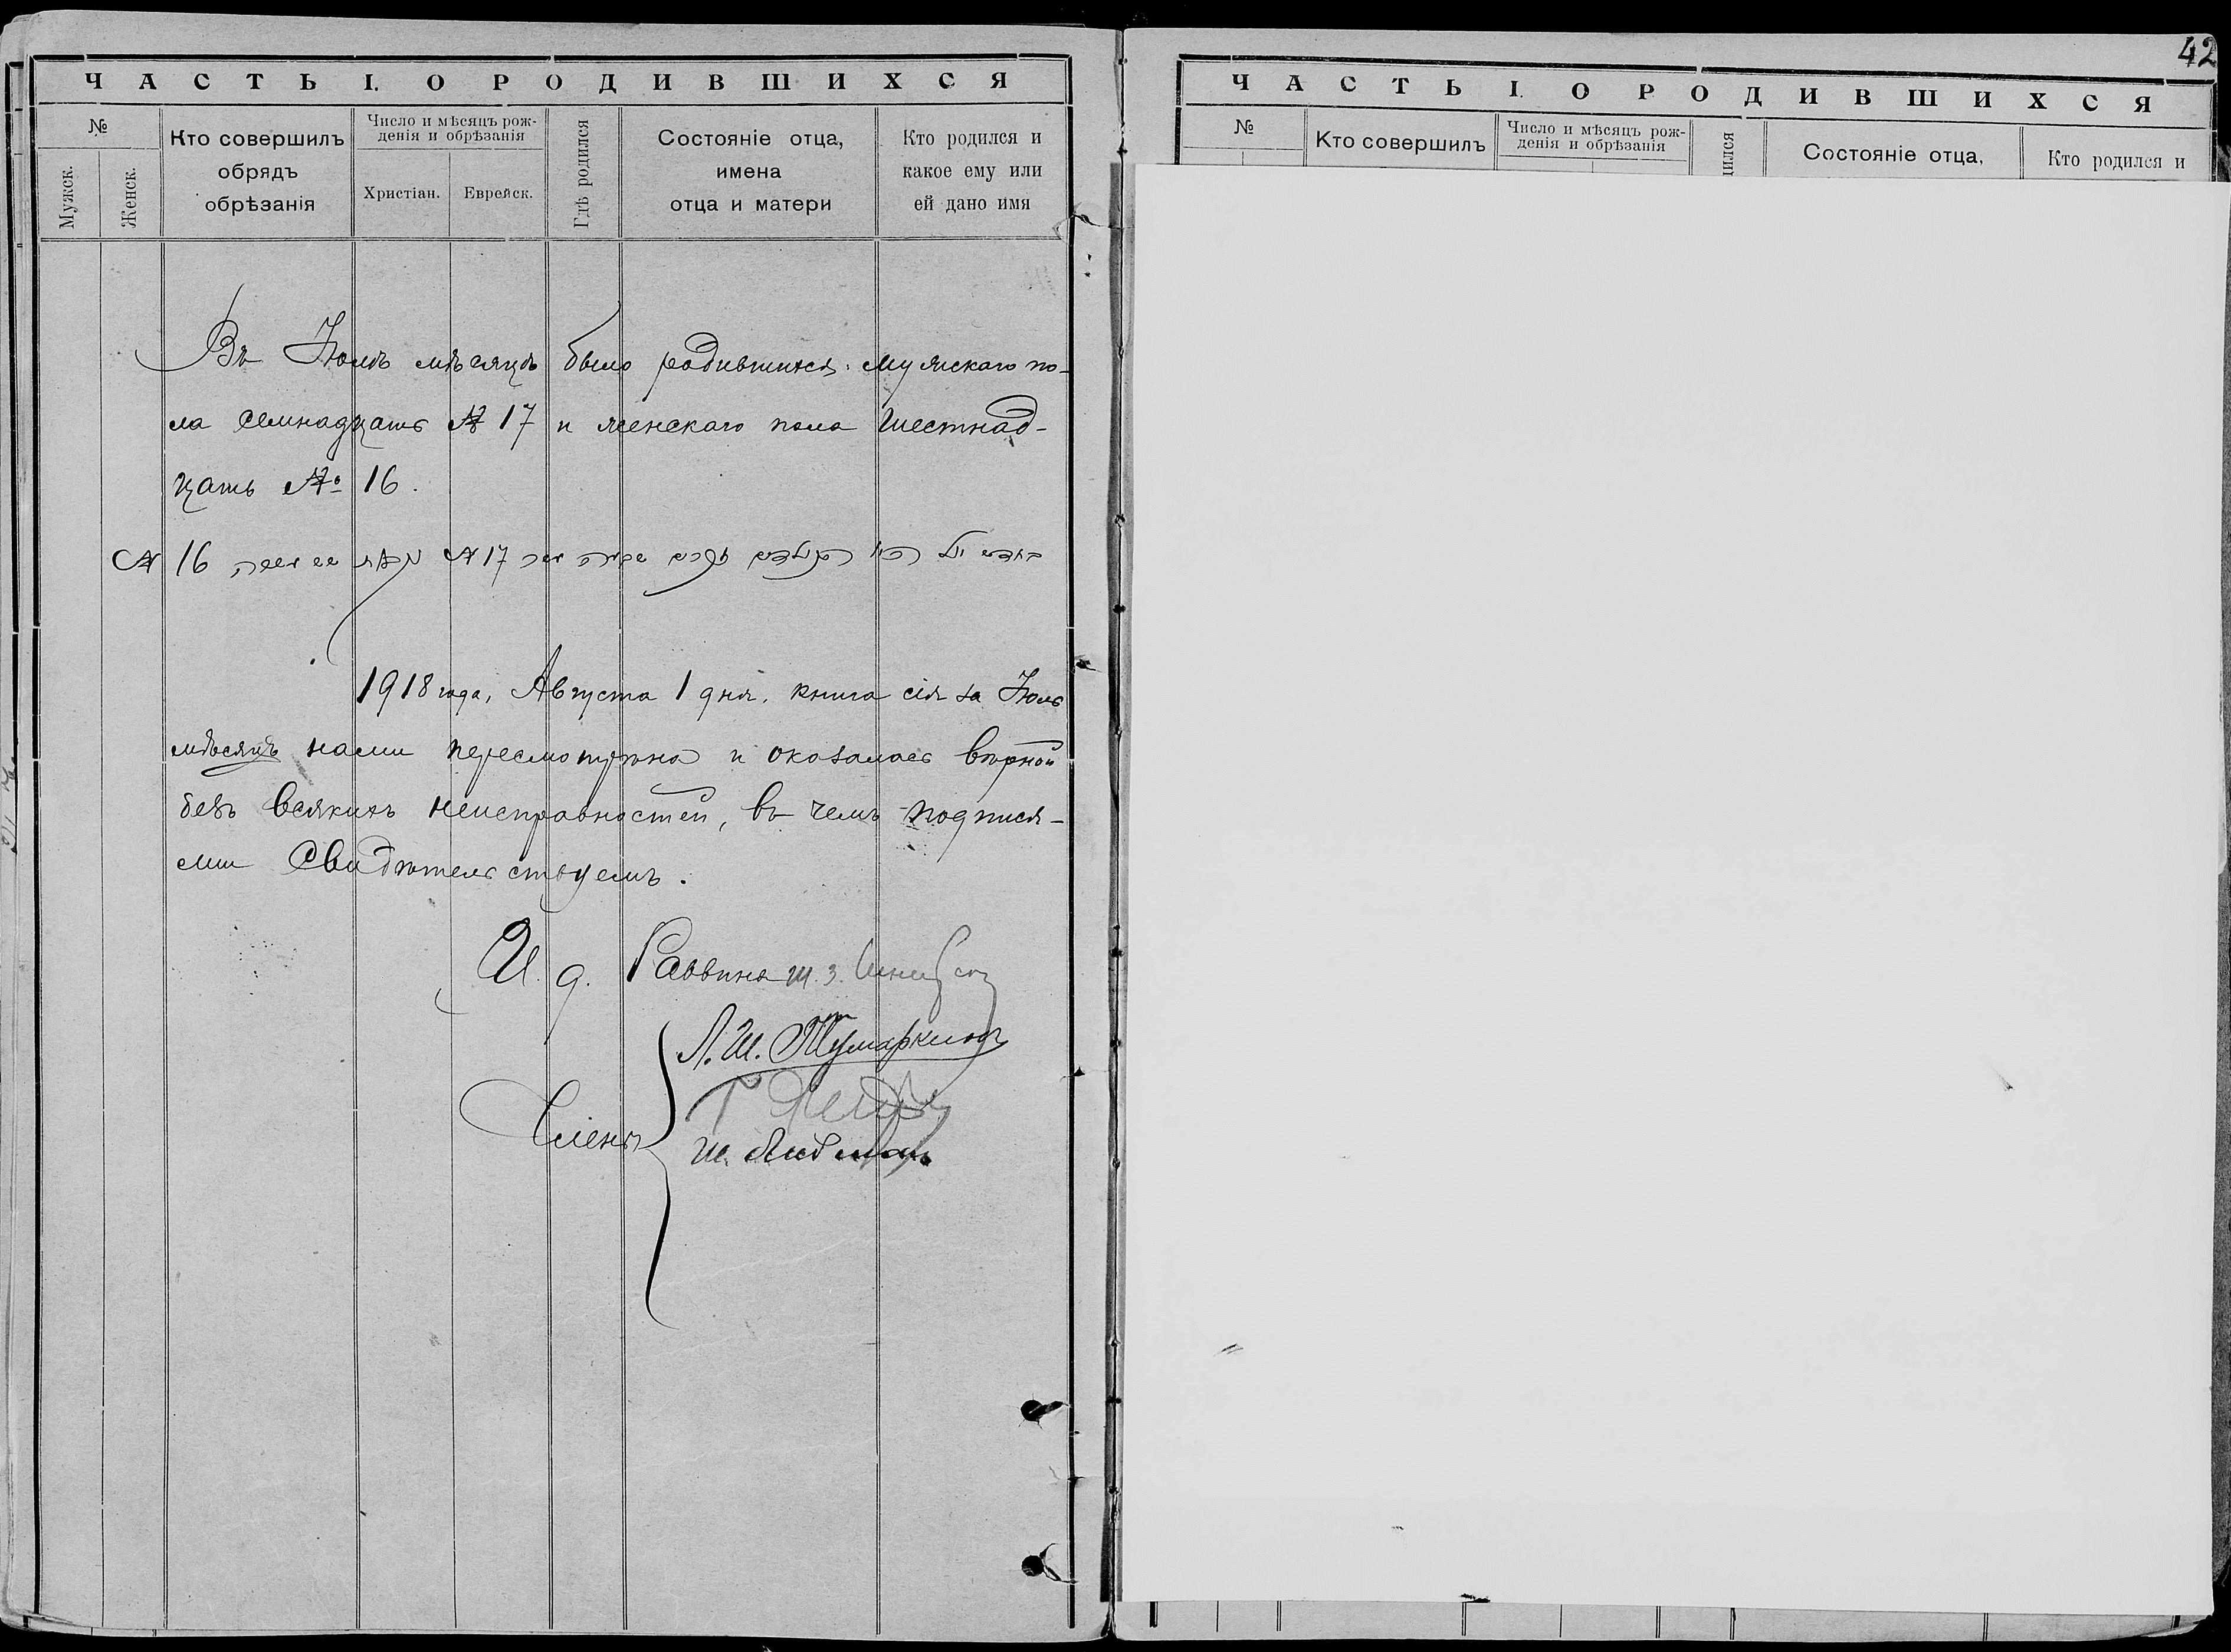 42
ЧАСТЬ I. О РОДИВШИХСЯ
№
Мужск.
Женск.
Кто совершилъ
обрядъ
обрѣзанія
Число и мѣсяцъ рож-
денія и обрѣзанія
Христіан.
Еврейск.
Гдѣ родился
Состояніе отца,
имена
отца и матери
Кто родился и
какое ему или
ей дано имя
Въ Іюлѣ мѣсяцѣ было родившихся: мужскаго по-
ла семнадцать № 17 и женскаго пола шестнад-
цать № 16.
№ 17 № 16
1918 года, Августа 1 дня, книга сія за Іюль
мѣсяцъ нами пересмотрѣна и оказалась вѣрной
безъ всякихъ неисправностей, въ чемъ подпися-
ми свидѣтельствуемъ.
И. д. Раввина Ш. З.
Л. Ш. Тумаркинъ
Члены
Ш.
ЧАСТЬ I. О РОДИВШИХСЯ
№
Кто совершилъ
Число и мѣсяцъ рож-
денія и обрѣзанія
Состояніе отца,
Кто родился и